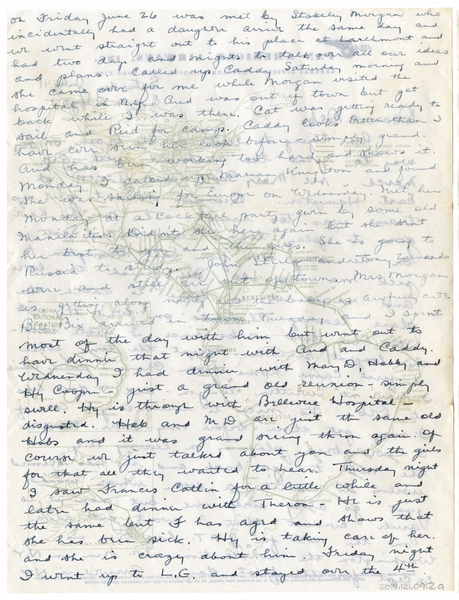 on Friday June 26 was met by Stakely Morgan who
incidentally had a daughter arrive the same day and
we went straight out to his place at Larchmont and
had two days and nights to talk over all our ideas
and plans. Called up Caddy Saturday morning and
she came over for me while Morgan visited the
hospital in N.Y. Aud was out of town but got
back while I was there. Cat was getting ready to
sail and Rud for camp. Caddy looks better than I
have ever seen her look before - simply grand.
Aud has been working too hard and shows it.
Monday I called up Marian and found
she was sailing for Europe on Wednesday. Saw her
Monday at a cocktail party given by some old
Manilaites. Didn't see her again but she sent
her best to you and the girls. She is going to
Russia to
were and still are out of town. Mrs. Morgan
is getting along nicely but has
Bix arrived in town Tuesday and I spent
most of the day with him but went out to
have dinner that night with Aud and Caddy.
Wednesday I had dinner with Mary D, Hobby and
Hy Cooper - just a grand old reunion - simply
swell. Hy is through with Bellevue Hospital -
disgusted. Hob and M D are just the same old
Hobs and it was grand seeing them again. Of
course we just talked about you and the girls
for that all they wanted to hear. Thursday night
I saw Francis Catlin for a little while and
later had dinner with Theron - He is just
the same but F has aged and shows that
she has been sick. Hy is taking care of her.
and she is crazy about him. Friday night
I went up to L.G. and stayed over the 4th.
2019.121.09.2a